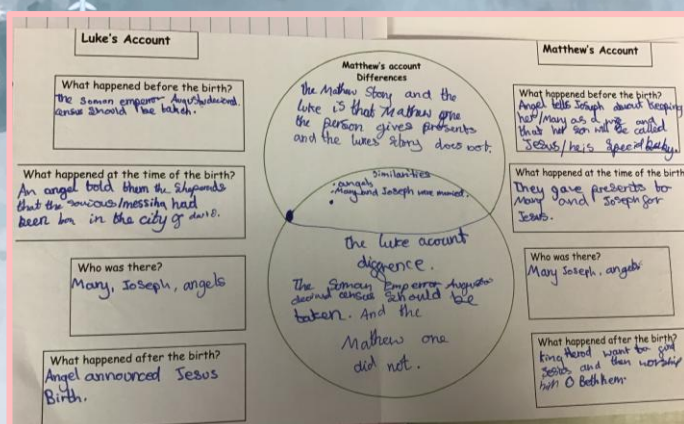 Luke's Account
What happened before the birth?
The Soman emperor Augustu decierd.
census Should be taken.
What happened at the time of the birth?
An angel told them the Shepards
that the saviour/messiha had
been bon in the city of
Who was there?
Mary, Joseph, angels
What happened after the birth?
Angel announced Jesus
Birth.
Matthew's account
Differences
the Mathew Story and the
Luke is that Mathew one
the person gives presents
and the lukes story does not.
Similarities
• angels
• Mary and Joseph were married.
•
the Luke acount
diggrence.
The Soman Emperror Augusto
decierd census Should be
taken. And the
Mathew one
did not.
Matthew's Account
What happened before the birth?
Angel tells Joseph about keeping
her/Mary as a wife and
that her son will be called
Jesus/he is special baby.
What happened at the time of the birth?
They gave presents to
Mary and Joseph for
Jesus.
Who was there?
Mary Joseph, angels
What happened after the birth?
king Herod want to find
Jesus and then worship
him O Bethhem.